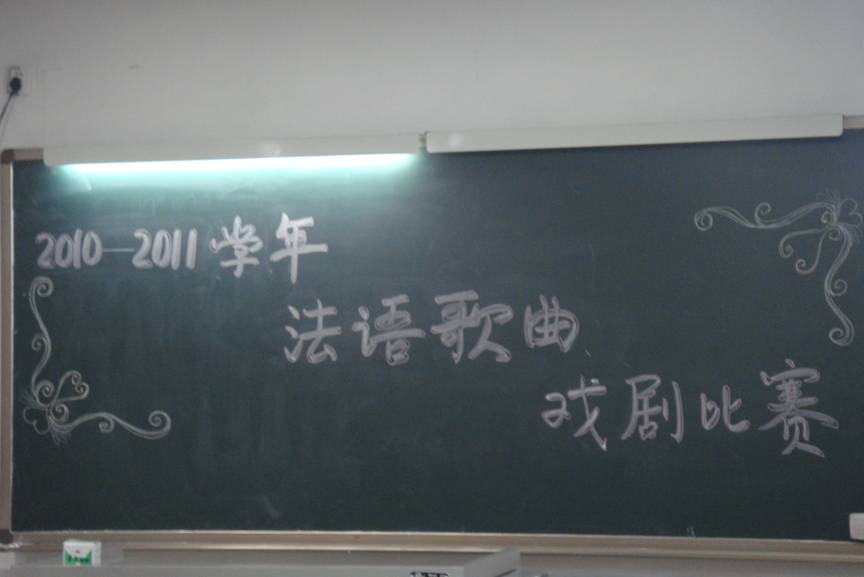 2010—2011学年
法语歌曲、
戏剧比赛